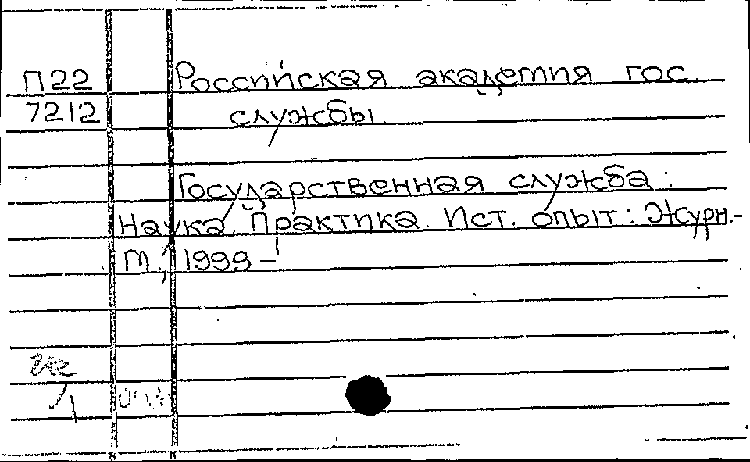 П22 Российская академия гос.
7212 службы
Государственная служба:
Наука. Практика. Ист. опыт: Журн.-
М., 1999 -